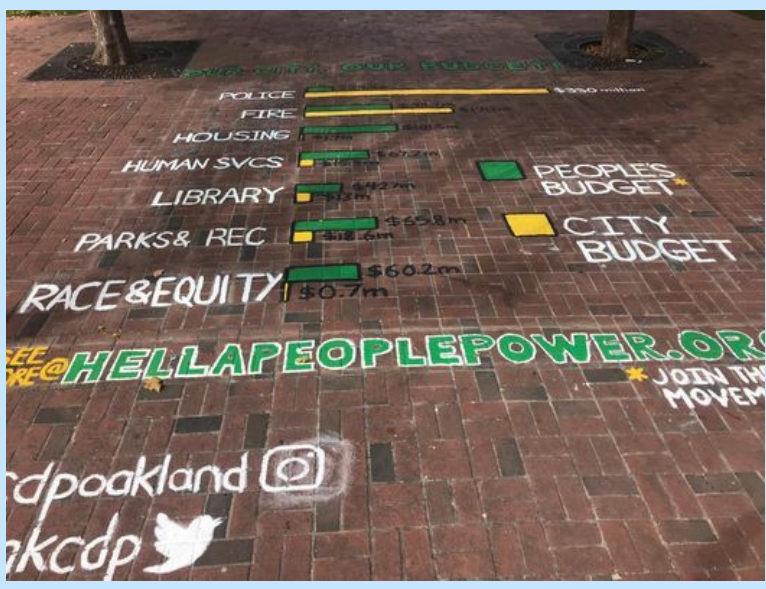 OUR CITY, OUR BUDGET!
POLICE $330 million
FIRE
HOUSING
HUMAN SVCS $67.2m
LIBRARY $42m
$13m
PARKS & REC $65.8m
$18.6m
RACE & EQUITY $60.2m
$0.7m
PEOPLE'S
BUDGET*
CITY
BUDGET
SEE
@HELLAPEOPLEPOWER.ORG
* JOIN THE
MOVEM
cdpoakland
kcdp